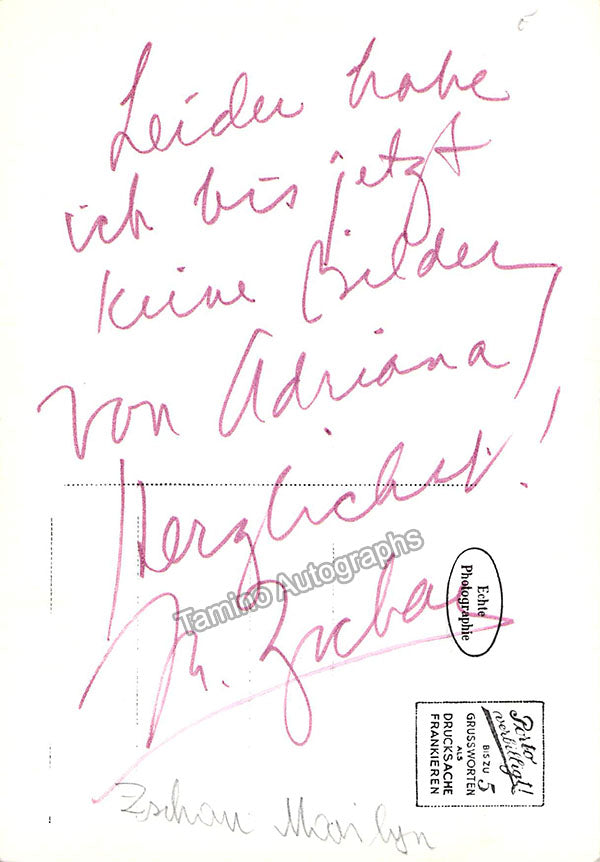 Leider habe
ich bis jetzt
keine Bilder
von Adriana!
Herzlichst!
M. Zschau
Tamino Autographs
Echte
Photographie
Porto
verbilligt!
BIS ZU 5
GRUSSWORTEN
ALS
DRUCKSACHE
FRANKIEREN
Zschau Marilyn